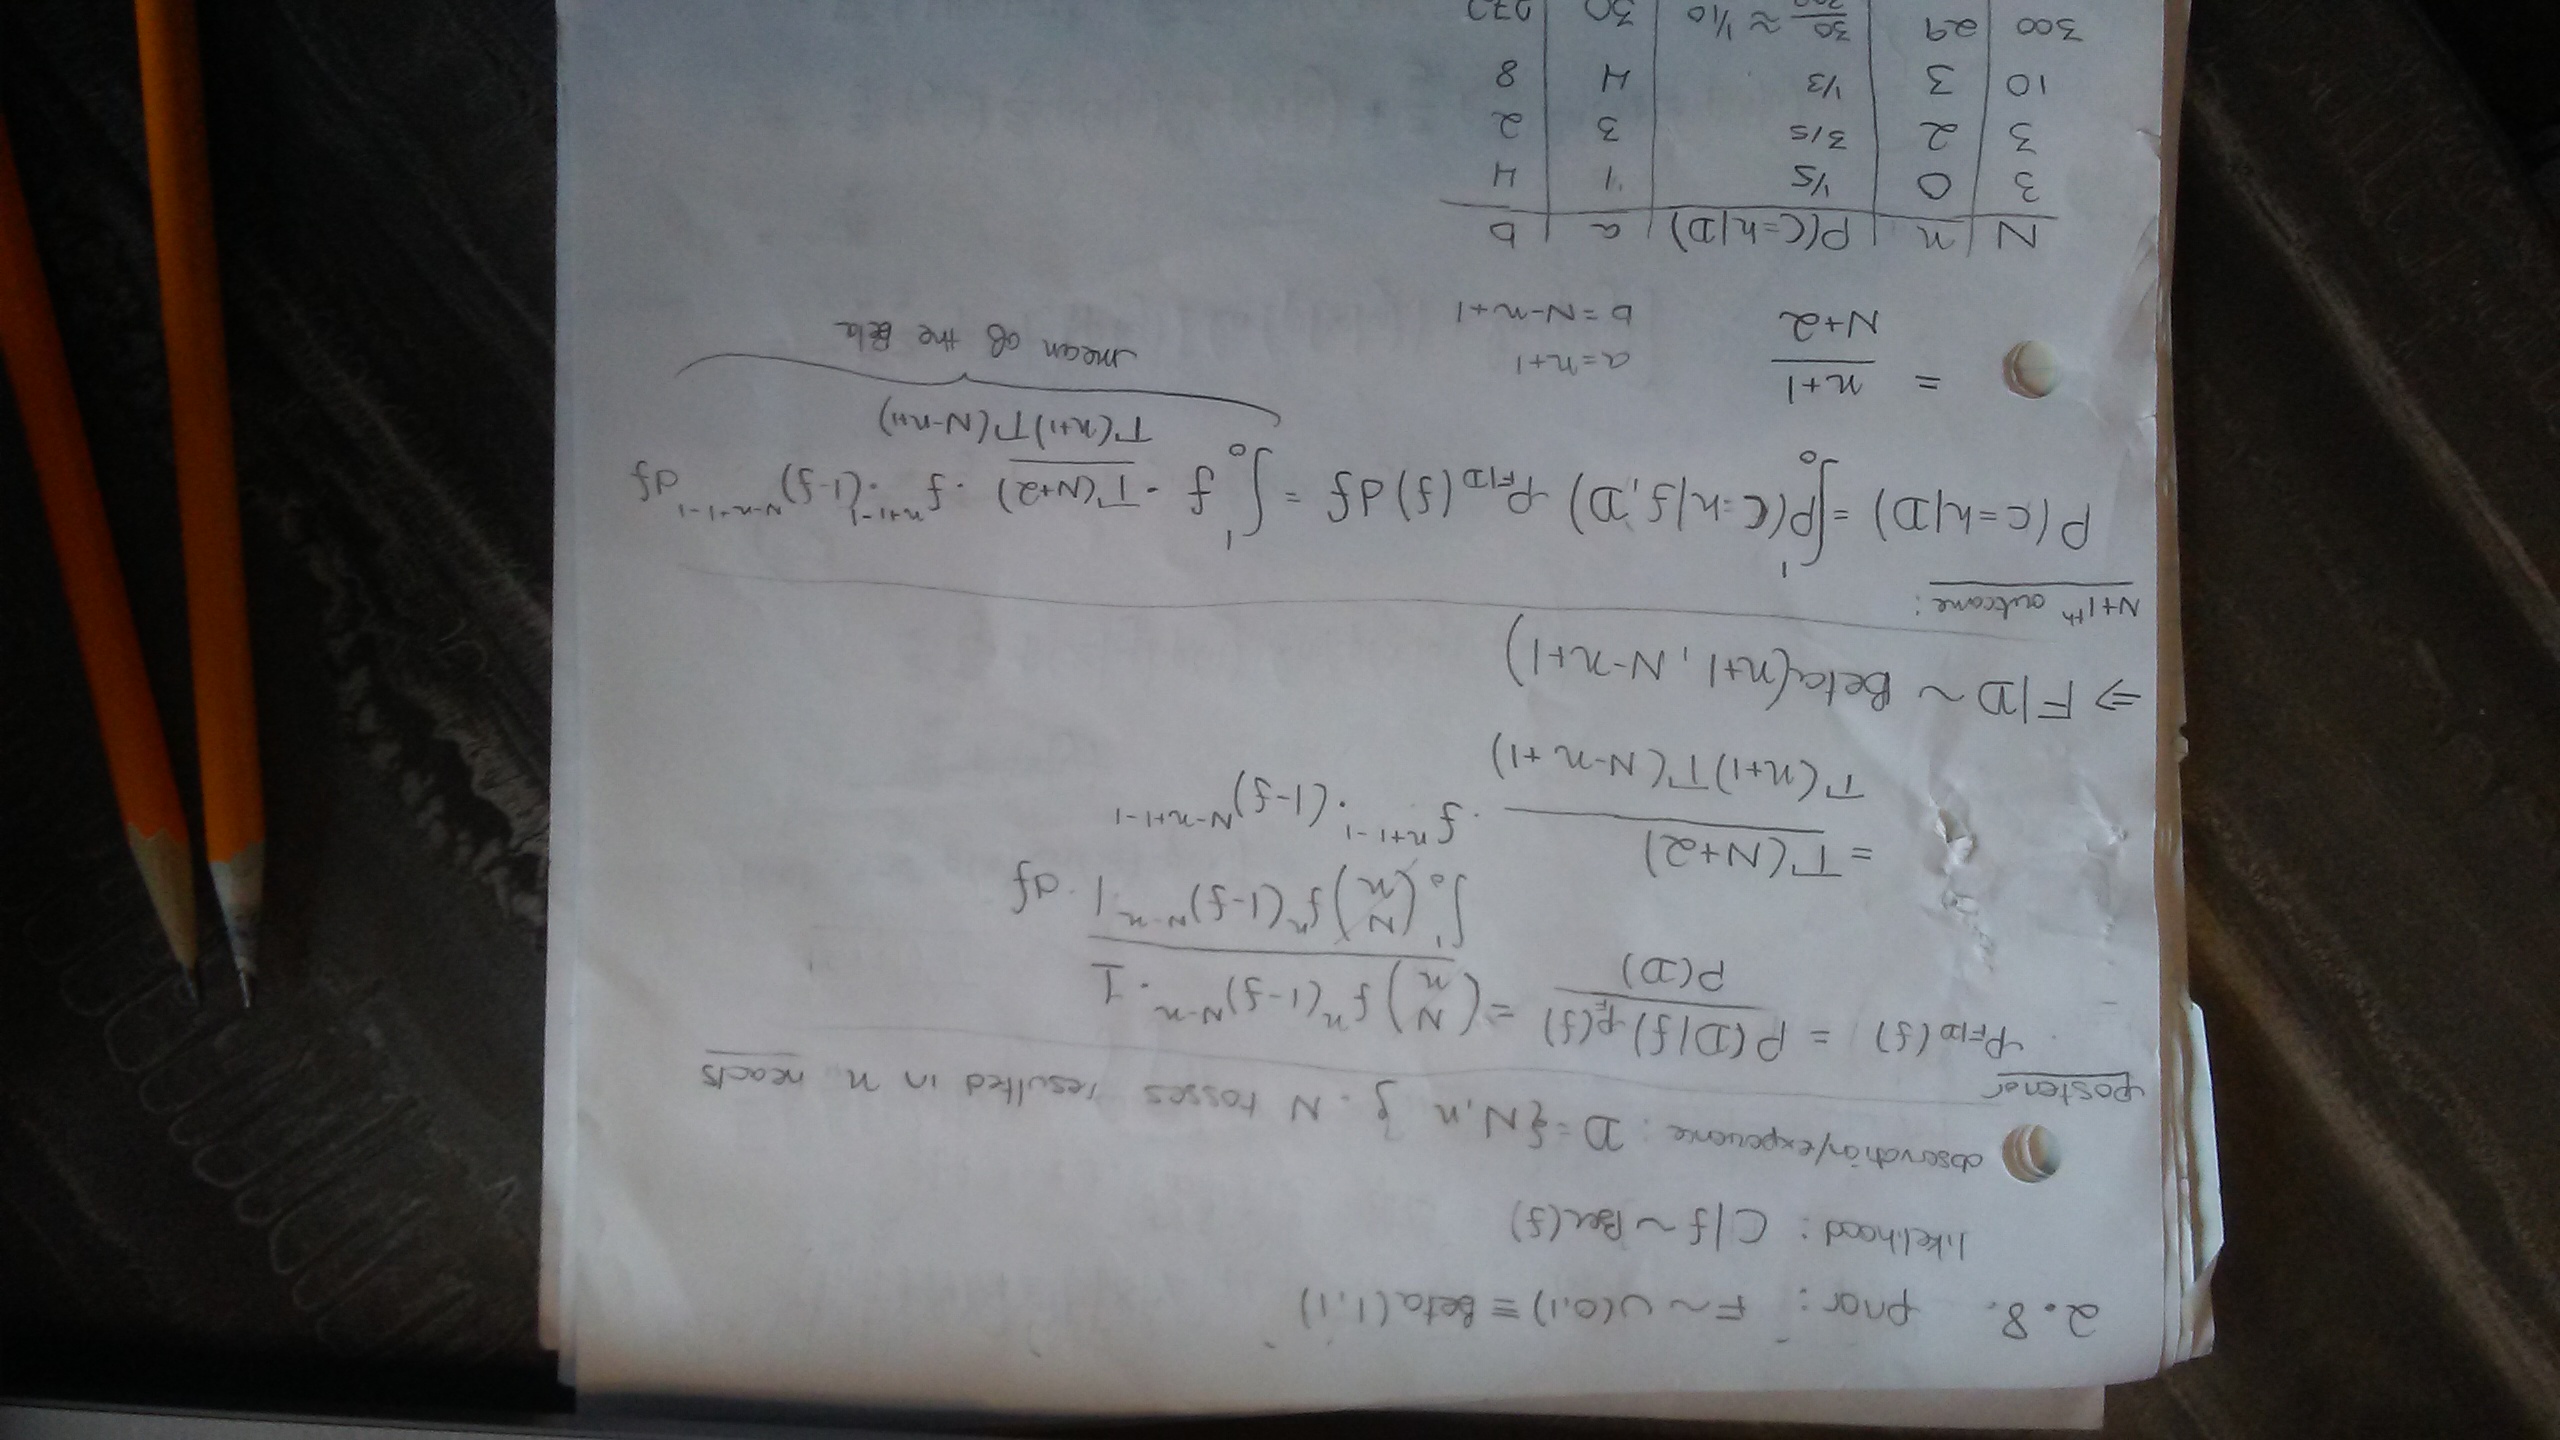 2.8. prior: F ~ U(0,1) ≡ Beta(1,1)
likelihood: C|f ~ Ber(f)
observation/experience: D = {N, n}. N tosses resulted in n heads
posterior
p_{F|D}(f) = P(D|f) p_F(f) / P(D) = \binom{N}{n} f^n (1-f)^{N-n} · 1 / ∫_0^1 \binom{N}{n} f^n (1-f)^{N-n} · 1 · df
= Γ(N+2) / Γ(n+1)Γ(N-n+1) · f^{n+1-1} · (1-f)^{N-n+1-1}
⇒ F|D ~ Beta(n+1, N-n+1)
N+1th outcome:
P(C=h|D) = ∫_0^1 P(C=h|f,D) p_{F|D}(f) df = ∫_0^1 f · Γ(N+2) / Γ(n+1)Γ(N-n+1) · f^{n+1-1} · (1-f)^{N-n+1-1} df
mean of the Beta
= n+1 / N+2
a = n+1
b = N-n+1
N | n | P(C=h|D) | a | b
3 | 0 | 1/5 | 1 | 4
3 | 2 | 3/5 | 3 | 2
10 | 3 | 1/3 | 4 | 8
300 | 29 | 30 ≈ 1/10 | 30 | 272